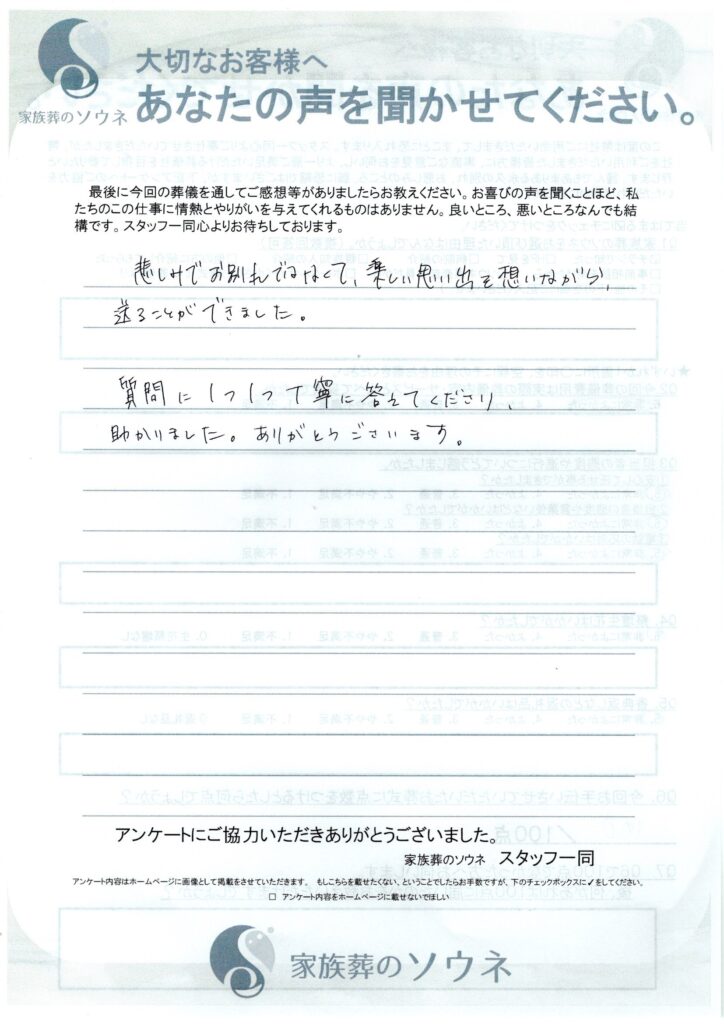 大切なお客様へ
家族葬のソウネ
あなたの声を聞かせてください。
最後に今回の葬儀を通してご感想等がありましたらお教えください。お喜びの声を聞くことほど、私
たちのこの仕事に情熱とやりがいを与えてくれるものはありません。良いところ、悪いところなんでも結
構です。スタッフ一同心よりお待ちしております。
悲しみでお別れではなくて、楽しい思い出を想いながら、
送ることができました。
質問に1つ1つ丁寧に答えてくださり、
助かりました。ありがとうございます。
アンケートにご協力いただきありがとうございました。
家族葬のソウネ スタッフ一同
アンケート内容はホームページに画像として掲載をさせていただきます。 もしこちらを載せたくない、ということでしたらお手数ですが、下のチェックボックスに✓をしてください。
□ アンケート内容をホームページに載せないでほしい
家族葬のソウネ